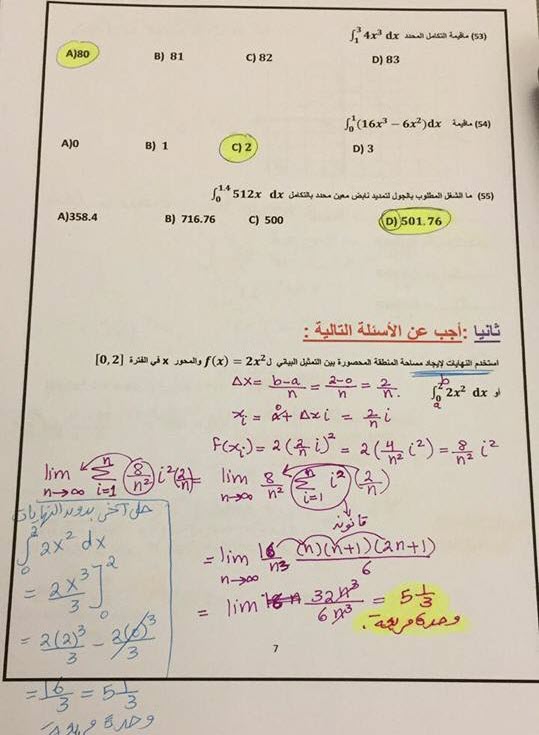 (53) ماقيمة التكامل المحدد ∫₁³ 4x³ dx
A)80 B) 81 C) 82 D) 83
(54) ماقيمة ∫₀¹(16x³ − 6x²)dx
A)0 B) 1 C) 2 D) 3
(55) ما الشغل المطلوب بالجول لتمديد نابض معين محدد بالتكامل ∫₀^1.4 512x dx
A)358.4 B) 716.76 C) 500 D) 501.76
ثانيا :أجب عن الأسئلة التالية :
استخدم النهايات لإيجاد مساحة المنطقة المحصورة بين التمثيل البياني ل f(x) = 2x² والمحور x في الفترة [0, 2]
أو ∫₀² 2x² dx
b
a
Δx = b-a/n = 2-0/n = 2/n .
xᵢ = a + Δx i = 2/n i
0
f(xᵢ) = 2(2/n i)² = 2(4/n² i²) = 8/n² i²
lim n→∞ Σ i=1 n (8/n²) i² (2/n) = lim n→∞ 8/n² Σ i=1 n i² (2/n)
قانونه
= lim n→∞ 16/n³ (n)(n+1)(2n+1)/6
= lim 32n³/6n³ = 5 1/3
وحدة مربعة.
حل آخر بدون النهايات
∫₀² 2x² dx
= 2x³/3 ]₀²
= 2(2)³/3 − 2(0)³/3
= 16/3 = 5 1/3
وحدة مربعة
7